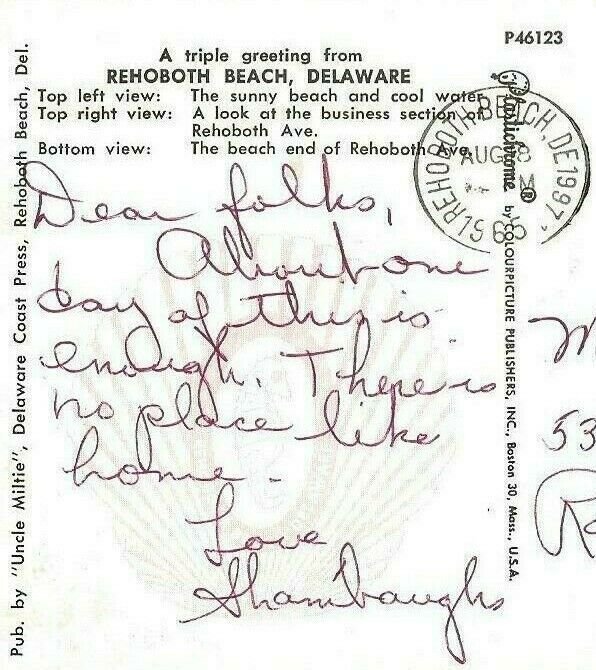 P46123
A triple greeting from
REHOBOTH BEACH, DELAWARE
Top left view: The sunny beach and cool water.
Top right view: A look at the business section of
Rehoboth Ave.
Bottom view: The beach end of Rehoboth Ave.
Dear folks,
About one
day of this is
enough. There is
no place like
home.
Love
Shambaughs
Pub. by "Uncle Miltie", Delaware Coast Press, Rehoboth Beach, Del.
Plastichrome ® by COLOURPICTURE PUBLISHERS, INC., Boston 30, Mass., U.S.A.
REHOBOTH BEACH, DE 19971
AUG
M
M
53